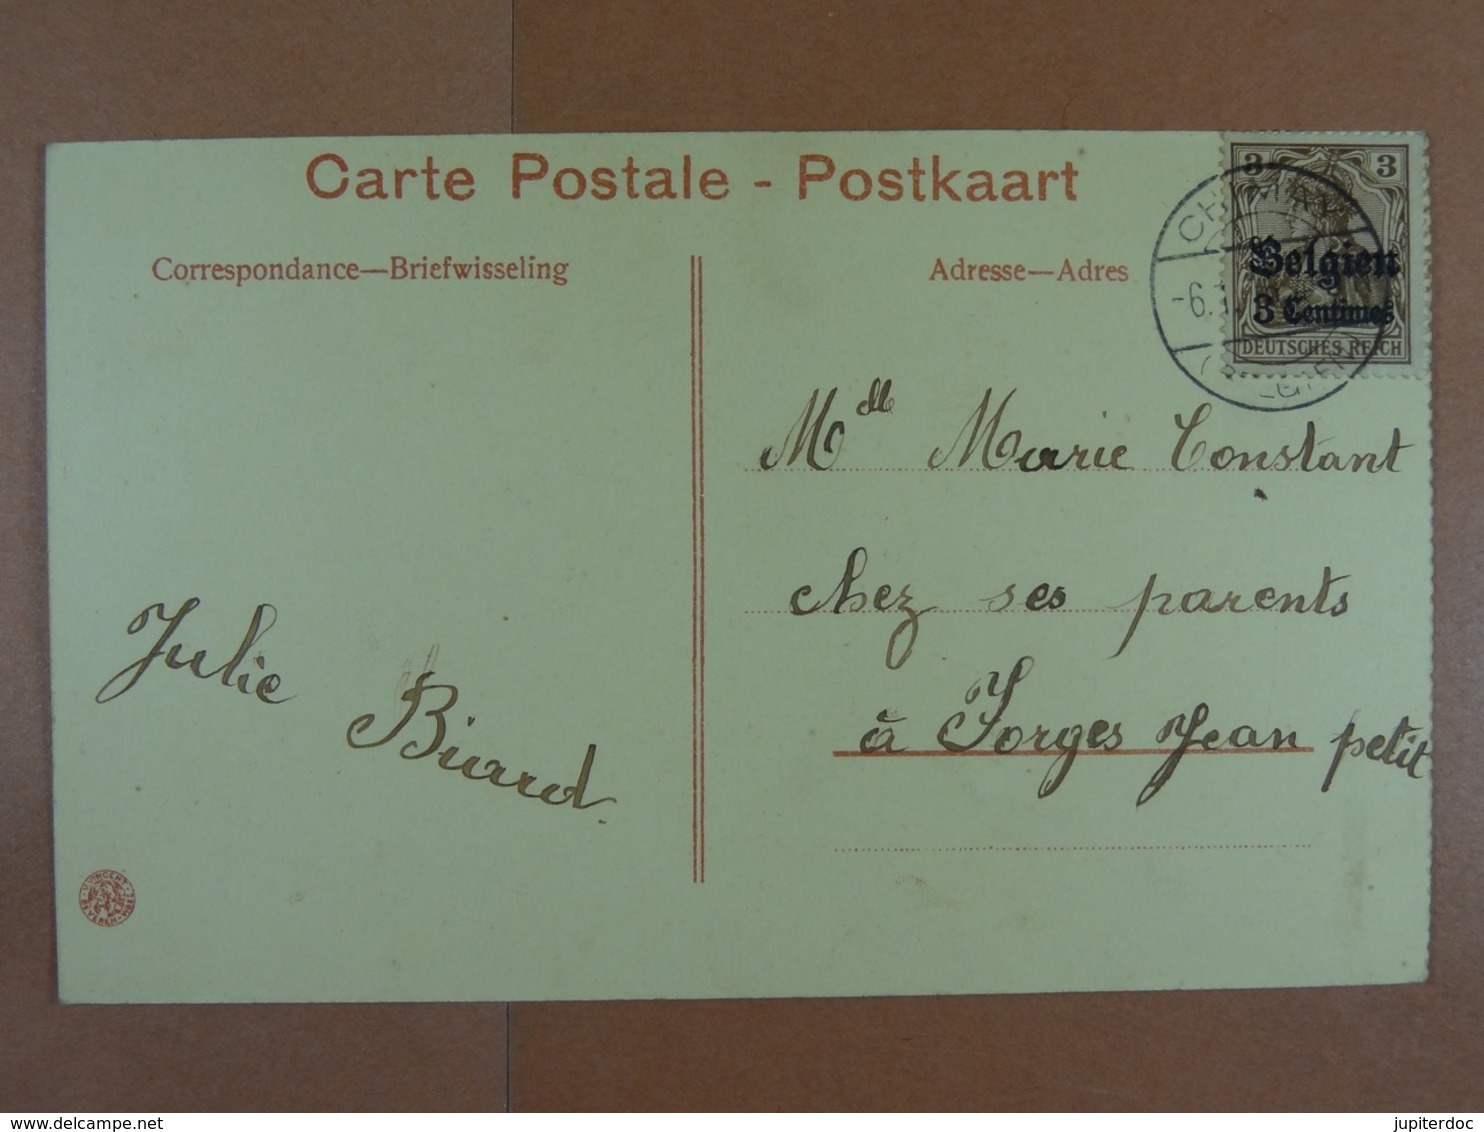 Carte Postale - Postkaart
Correspondance—Briefwisseling
Adresse—Adres
3 3
Belgien
3 Centimes
DEUTSCHES REICH
CHIMAY
-6.
(BELGIEN)
Mdlle Marie Constant
chez ses parents
à Forges Jean petit
Julie Biard.
delcampe.net
jupiterdoc